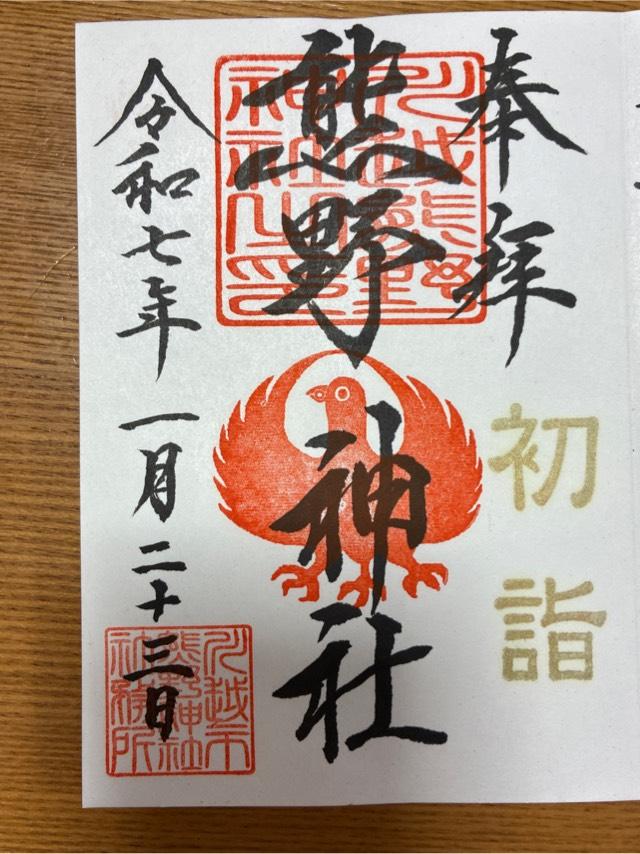 奉拝
初詣
熊野神社
令和七年 一月二十三日
川越熊野神社之印
川越市
熊野神社
社務所